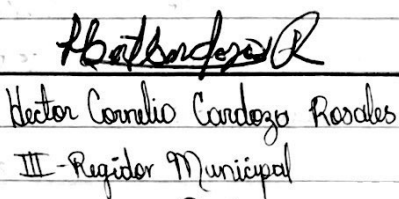 Hector Cornelio Cardozo Rosales
III - Regidor Municipal